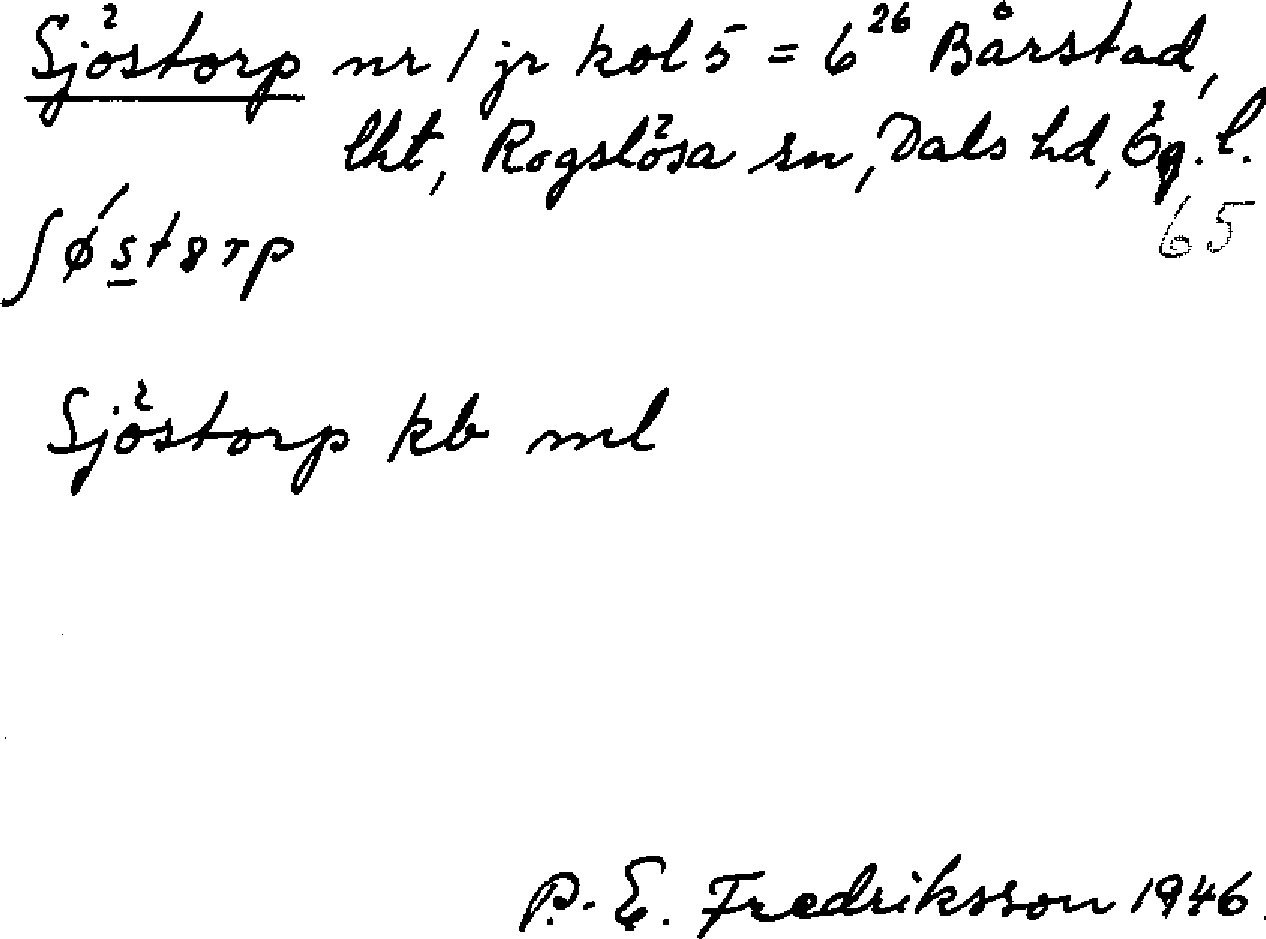 Sjöstorp nr 1 jr kol 5 = 6²⁶ Bårstad,
lht, Rogslösa sn, Dals hd, Ög. l.
65
ʃǿs̲tɞrp
Sjöstorp kb ml
P. E. Fredriksson 1946.